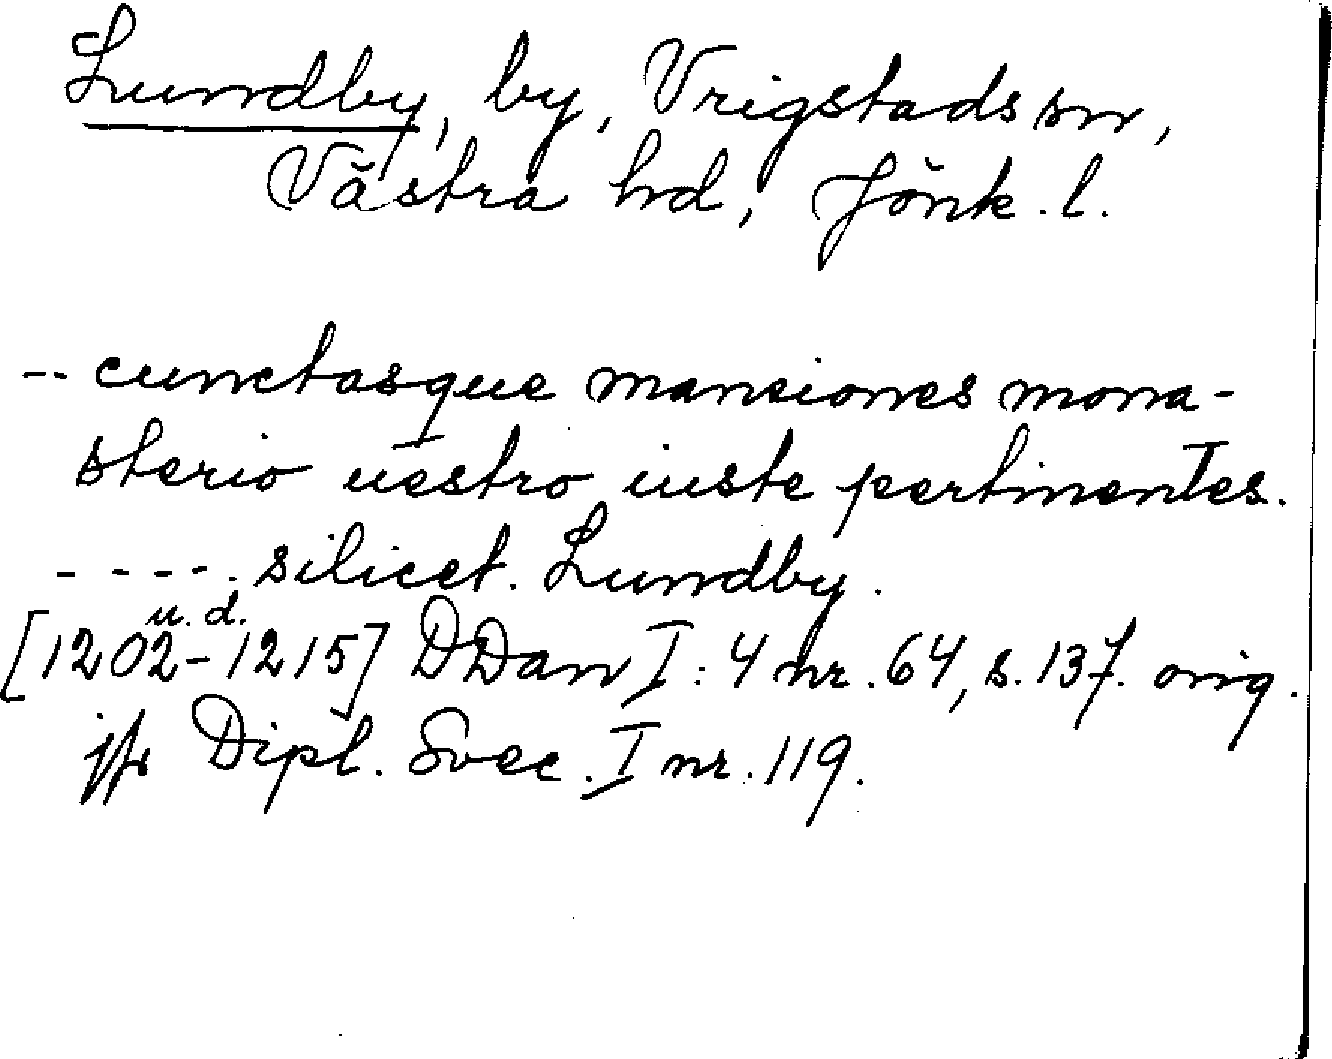 Lundby, by, Vrigstads sn,
Västra hd, Jönk. l.
-- cunctasque mansiones mona-
sterio uestro iuste pertinentes.
----. silicet. Lundby.
u. d.
[1202-1215] DDan I: 4 nr. 64, s. 137. orig.
jfr Dipl. Svec. I nr. 119.